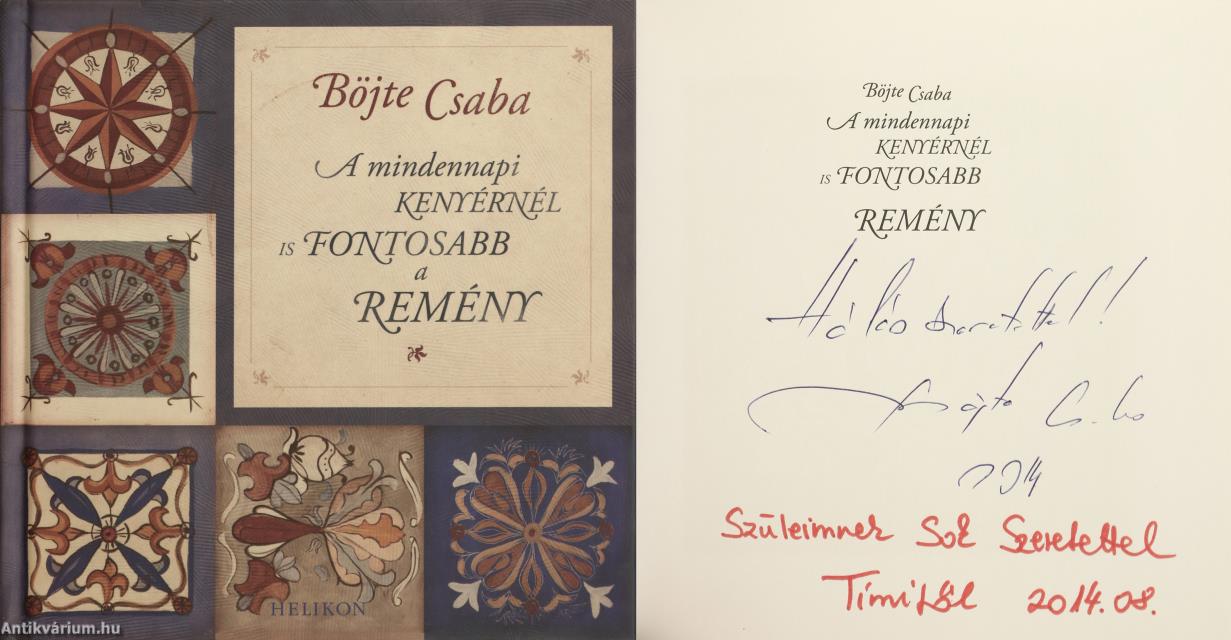 Böjte Csaba
A mindennapi
KENYÉRNÉL
IS FONTOSABB
a
REMÉNY
HELIKON
Antikvárium.hu
Böjte Csaba
A mindennapi
KENYÉRNÉL
IS FONTOSABB
REMÉNY
Hálás szeretettel!
Böjte Csaba
2014
Szüleimnek Sok Szeretettel
Tímitől 2014.08.